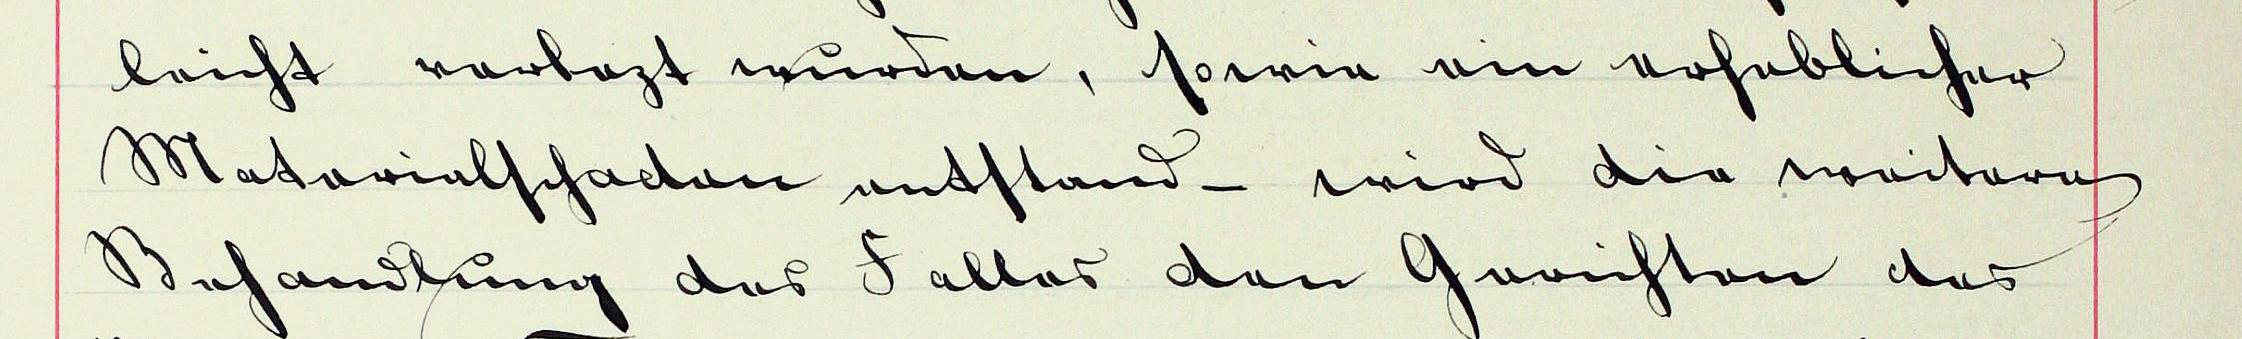 leicht verlezt wurden, sowie ein erheblicher
Materialschaden entstand – wird die weitere
Behandlung des Falles den Gerichten des